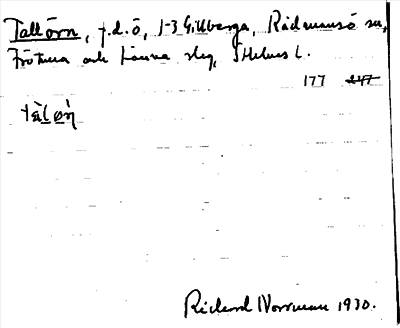 Tallörn, f.d.ö, 1-3 Gillberga, Rådmansö sn,
Frötuna och Länna slg, Sthlms l.
177 247
tàl ǫ̀ņ
Rickard Norrman 1930.